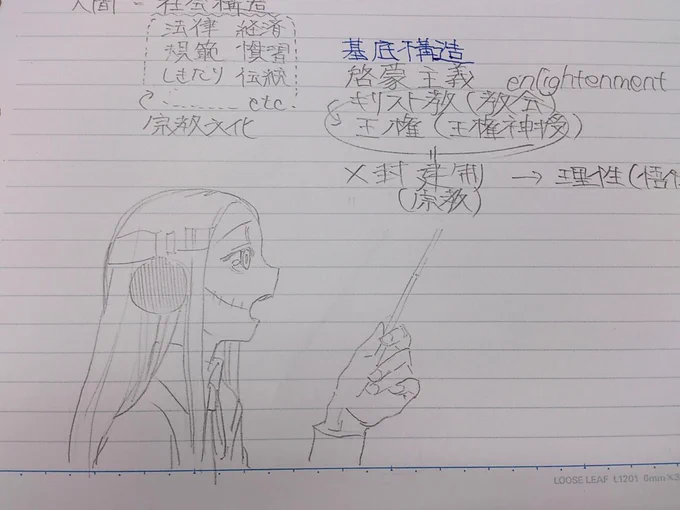 人間 - 社会構造
法律 経済
規範 慣習
しきたり 伝統
etc
宗教文化
基底構造
啓蒙主義 enlightenment
キリスト教(教会)
王権(王権神授)
×封建制 → 理性(悟性
(宗教)
LOOSE LEAF L1201 6mm×